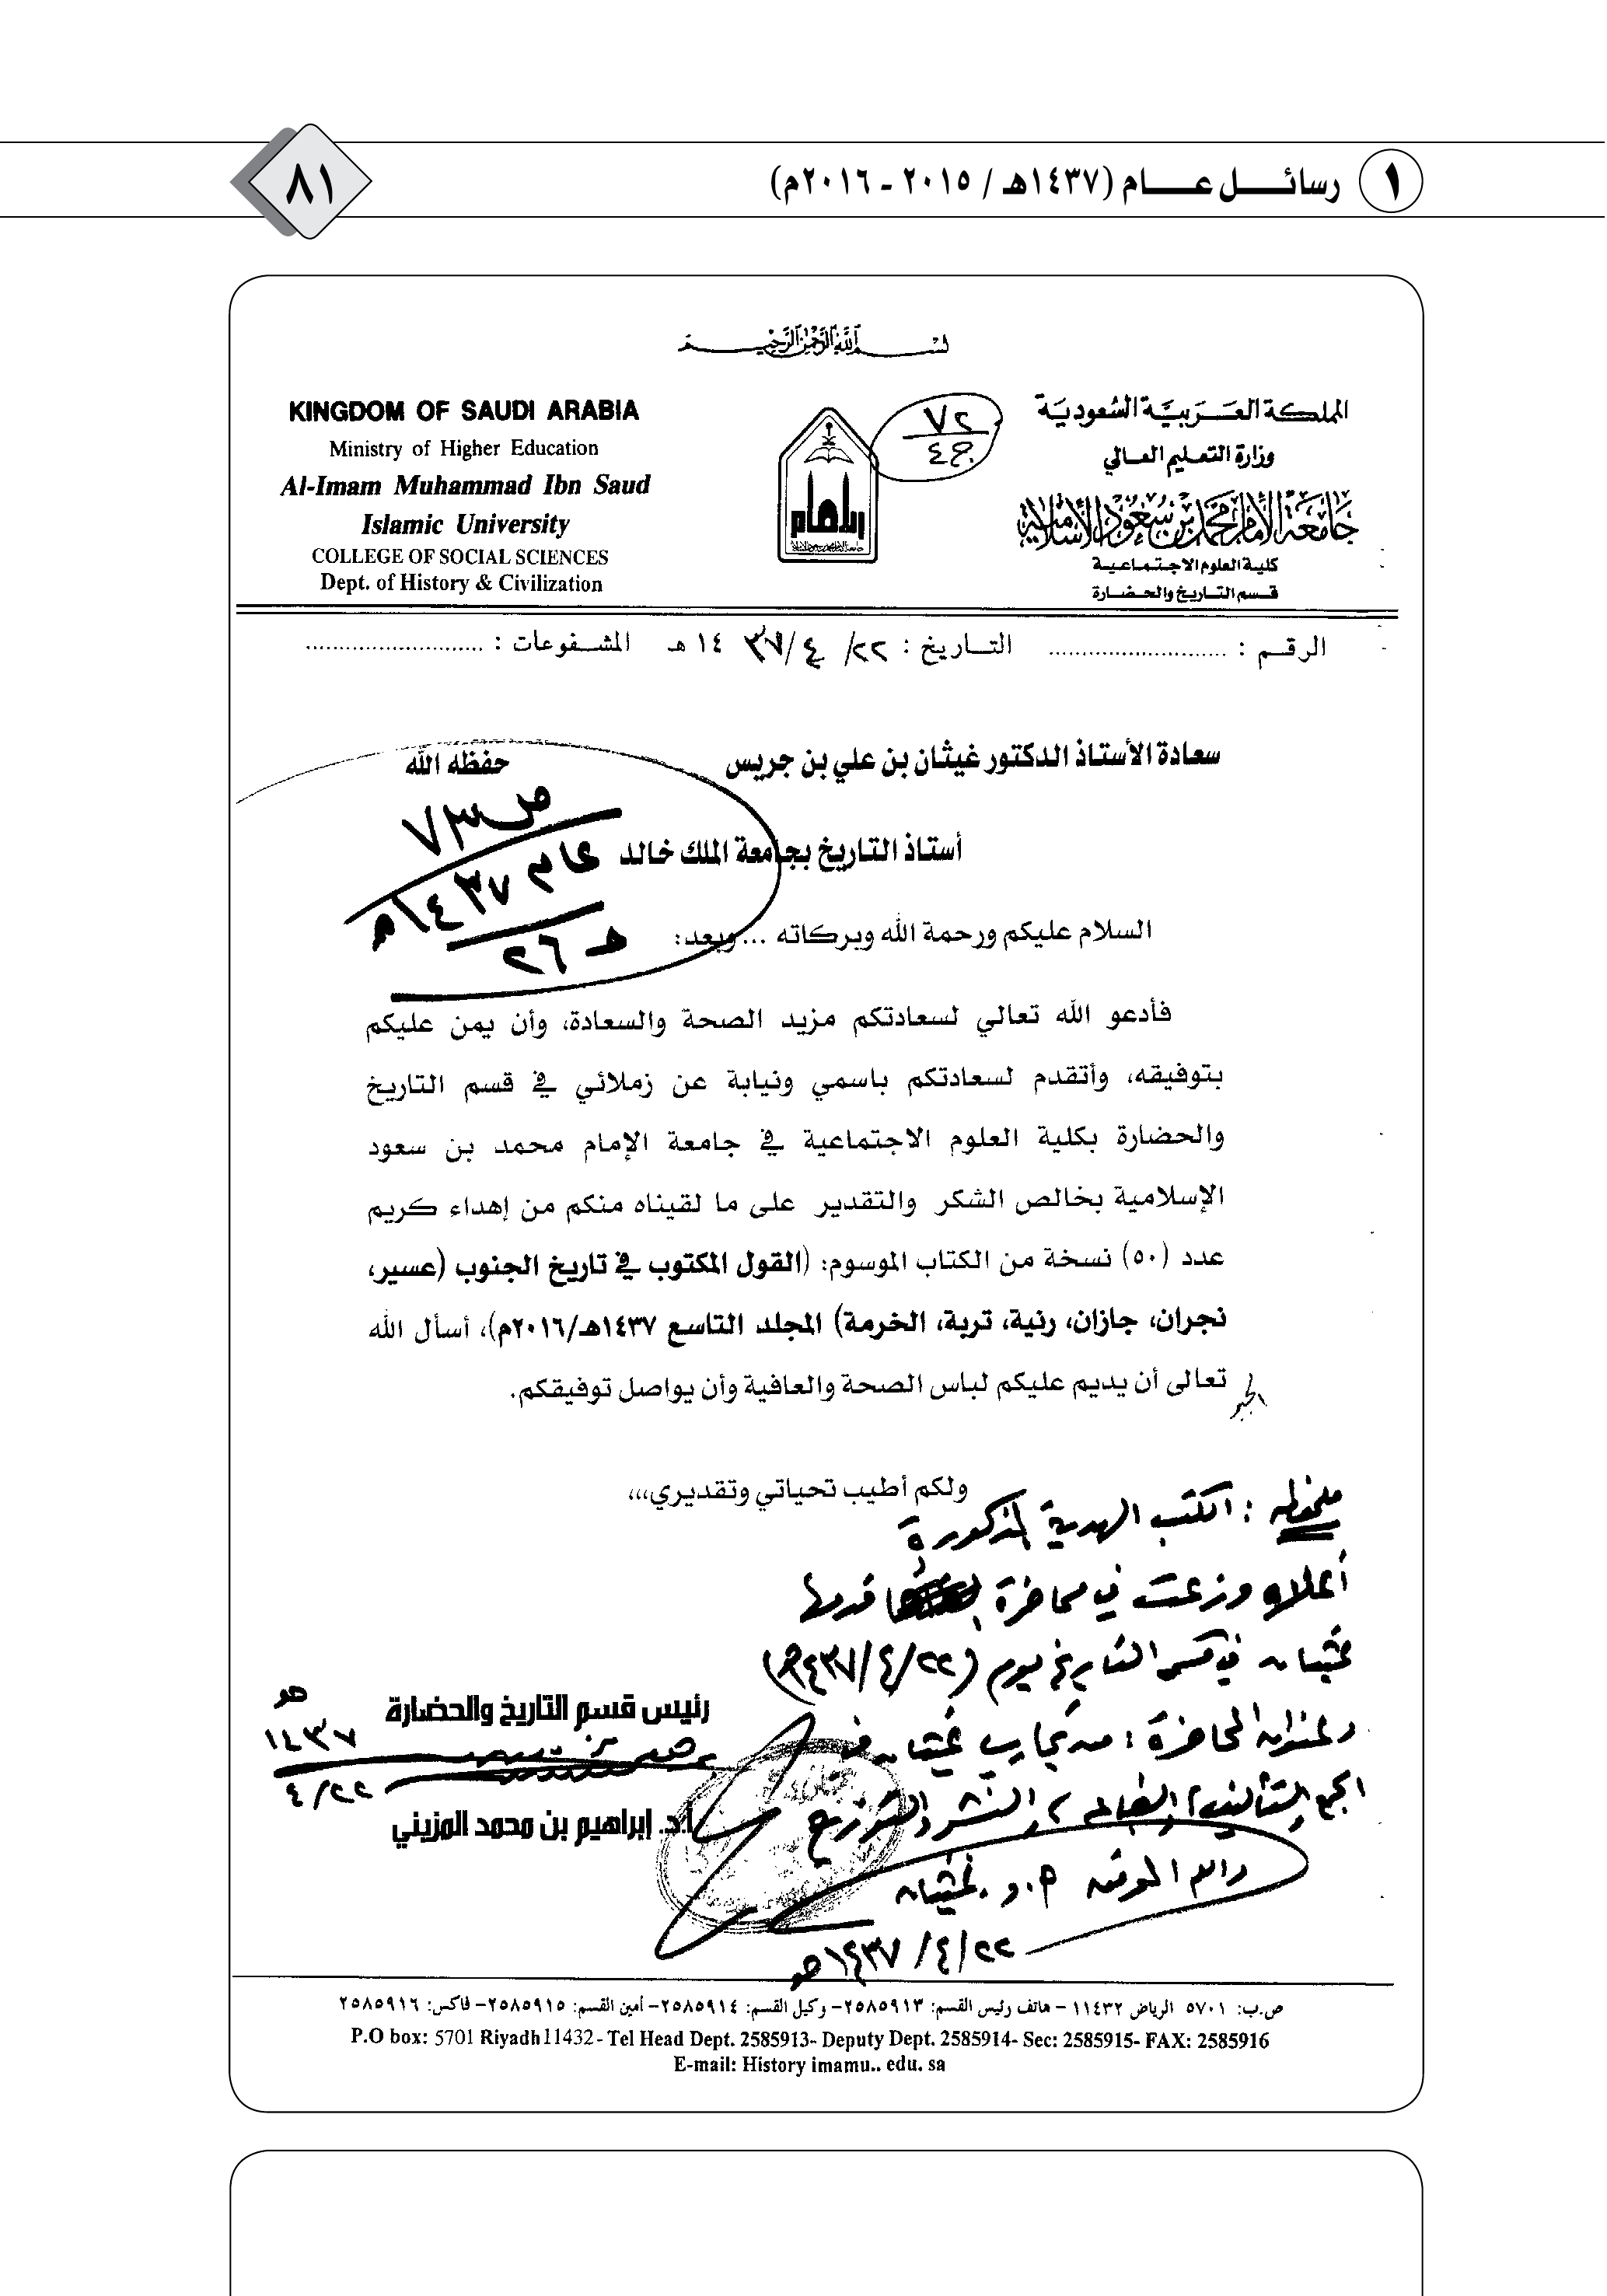 ١ رسائـــــل عـــــام (١٤٣٧هـ / ٢٠١٥ - ٢٠١٦م)
٨١
بسم الله الرحمن الرحيم
المملكة العربية السعودية
وزارة التعليم العالي
جامعة الإمام محمد بن سعود الإسلامية
كلية العلوم الاجتماعية
قسم التاريخ والحضارة
٧٢
ج٤
KINGDOM OF SAUDI ARABIA
Ministry of Higher Education
Al-Imam Muhammad Ibn Saud
Islamic University
COLLEGE OF SOCIAL SCIENCES
Dept. of History & Civilization
الرقم : ........................... التاريخ : ٢٢/ ٤/ ٣٧ ١٤ هـ المشفوعات : ...........................
سعادة الأستاذ الدكتور غيثان بن علي بن جريس حفظه الله
ص٧٣
أستاذ التاريخ بجامعة الملك خالد
عام ١٤٣٧هـ
هـ ٢٦
السلام عليكم ورحمة الله وبركاته ... وبعد:
فأدعو الله تعالي لسعادتكم مزيد الصحة والسعادة، وأن يمن عليكم
بتوفيقه، وأتقدم لسعادتكم باسمي ونيابة عن زملائي في قسم التاريخ
والحضارة بكلية العلوم الاجتماعية في جامعة الإمام محمد بن سعود
الإسلامية بخالص الشكر والتقدير على ما لقيناه منكم من إهداء كريم
عدد (٥٠) نسخة من الكتاب الموسوم: (القول المكتوب في تاريخ الجنوب (عسير،
نجران، جازان، رنية، تربة، الخرمة) المجلد التاسع ١٤٣٧هـ/٢٠١٦م)، أسأل الله
تعالى أن يديم عليكم لباس الصحة والعافية وأن يواصل توفيقكم.
ولكم أطيب تحياتي وتقديري،،،
ملحوظه : الكتب الهدية المذكورة
أعلاه وزعت في محاضرة قدمها
غيثان في قسم التاريخ يوم (٢٢/٤/١٤٣٧هـ)
وعنوان المحاضرة : من تجارب غيثان في
الجمع والتأليف والنشر والتوزيع
والله الموفق أ.د. غيثان
٢٢/٤/١٤٣٧هـ
رئيس قسم التاريخ والحضارة
١٤٣٧هـ
٢٢/٤
أ.د. إبراهيم بن محمد المزيني
ص.ب: ٥٧٠١ الرياض ١١٤٣٢ – هاتف رئيس القسم: ٢٥٨٥٩١٣– وكيل القسم: ٢٥٨٥٩١٤– أمين القسم: ٢٥٨٥٩١٥– فاكس: ٢٥٨٥٩١٦
P.O box: 5701 Riyadh11432- Tel Head Dept. 2585913- Deputy Dept. 2585914- Sec: 2585915- FAX: 2585916
E-mail: History imamu.. edu. sa